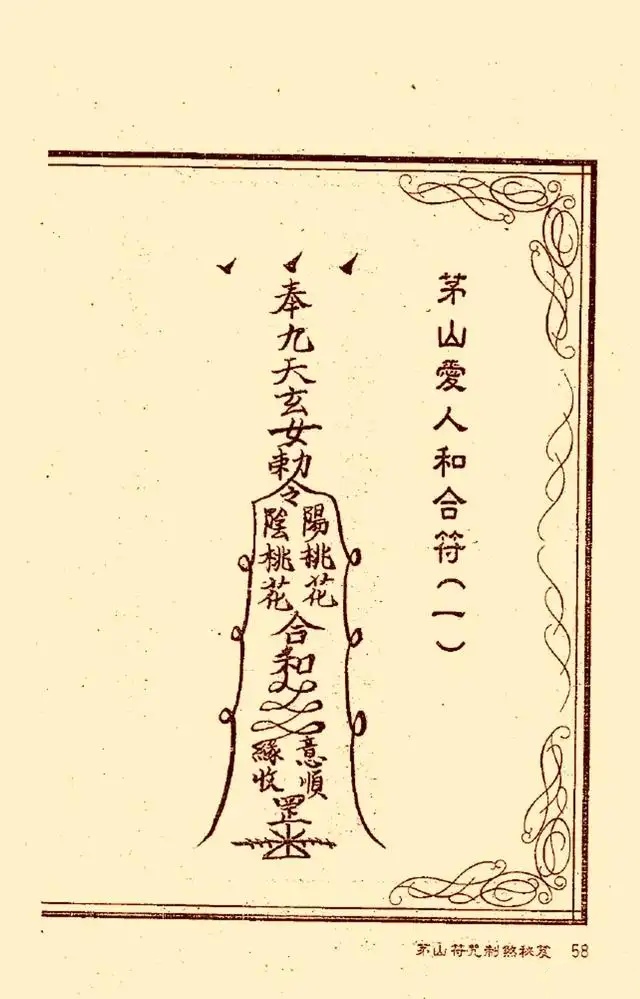 茅山愛人和合符（一）
奉九天玄女勅令
陽桃花
陰桃花
合和
意順
緣收
罡
茅山符咒制煞秘笈 58